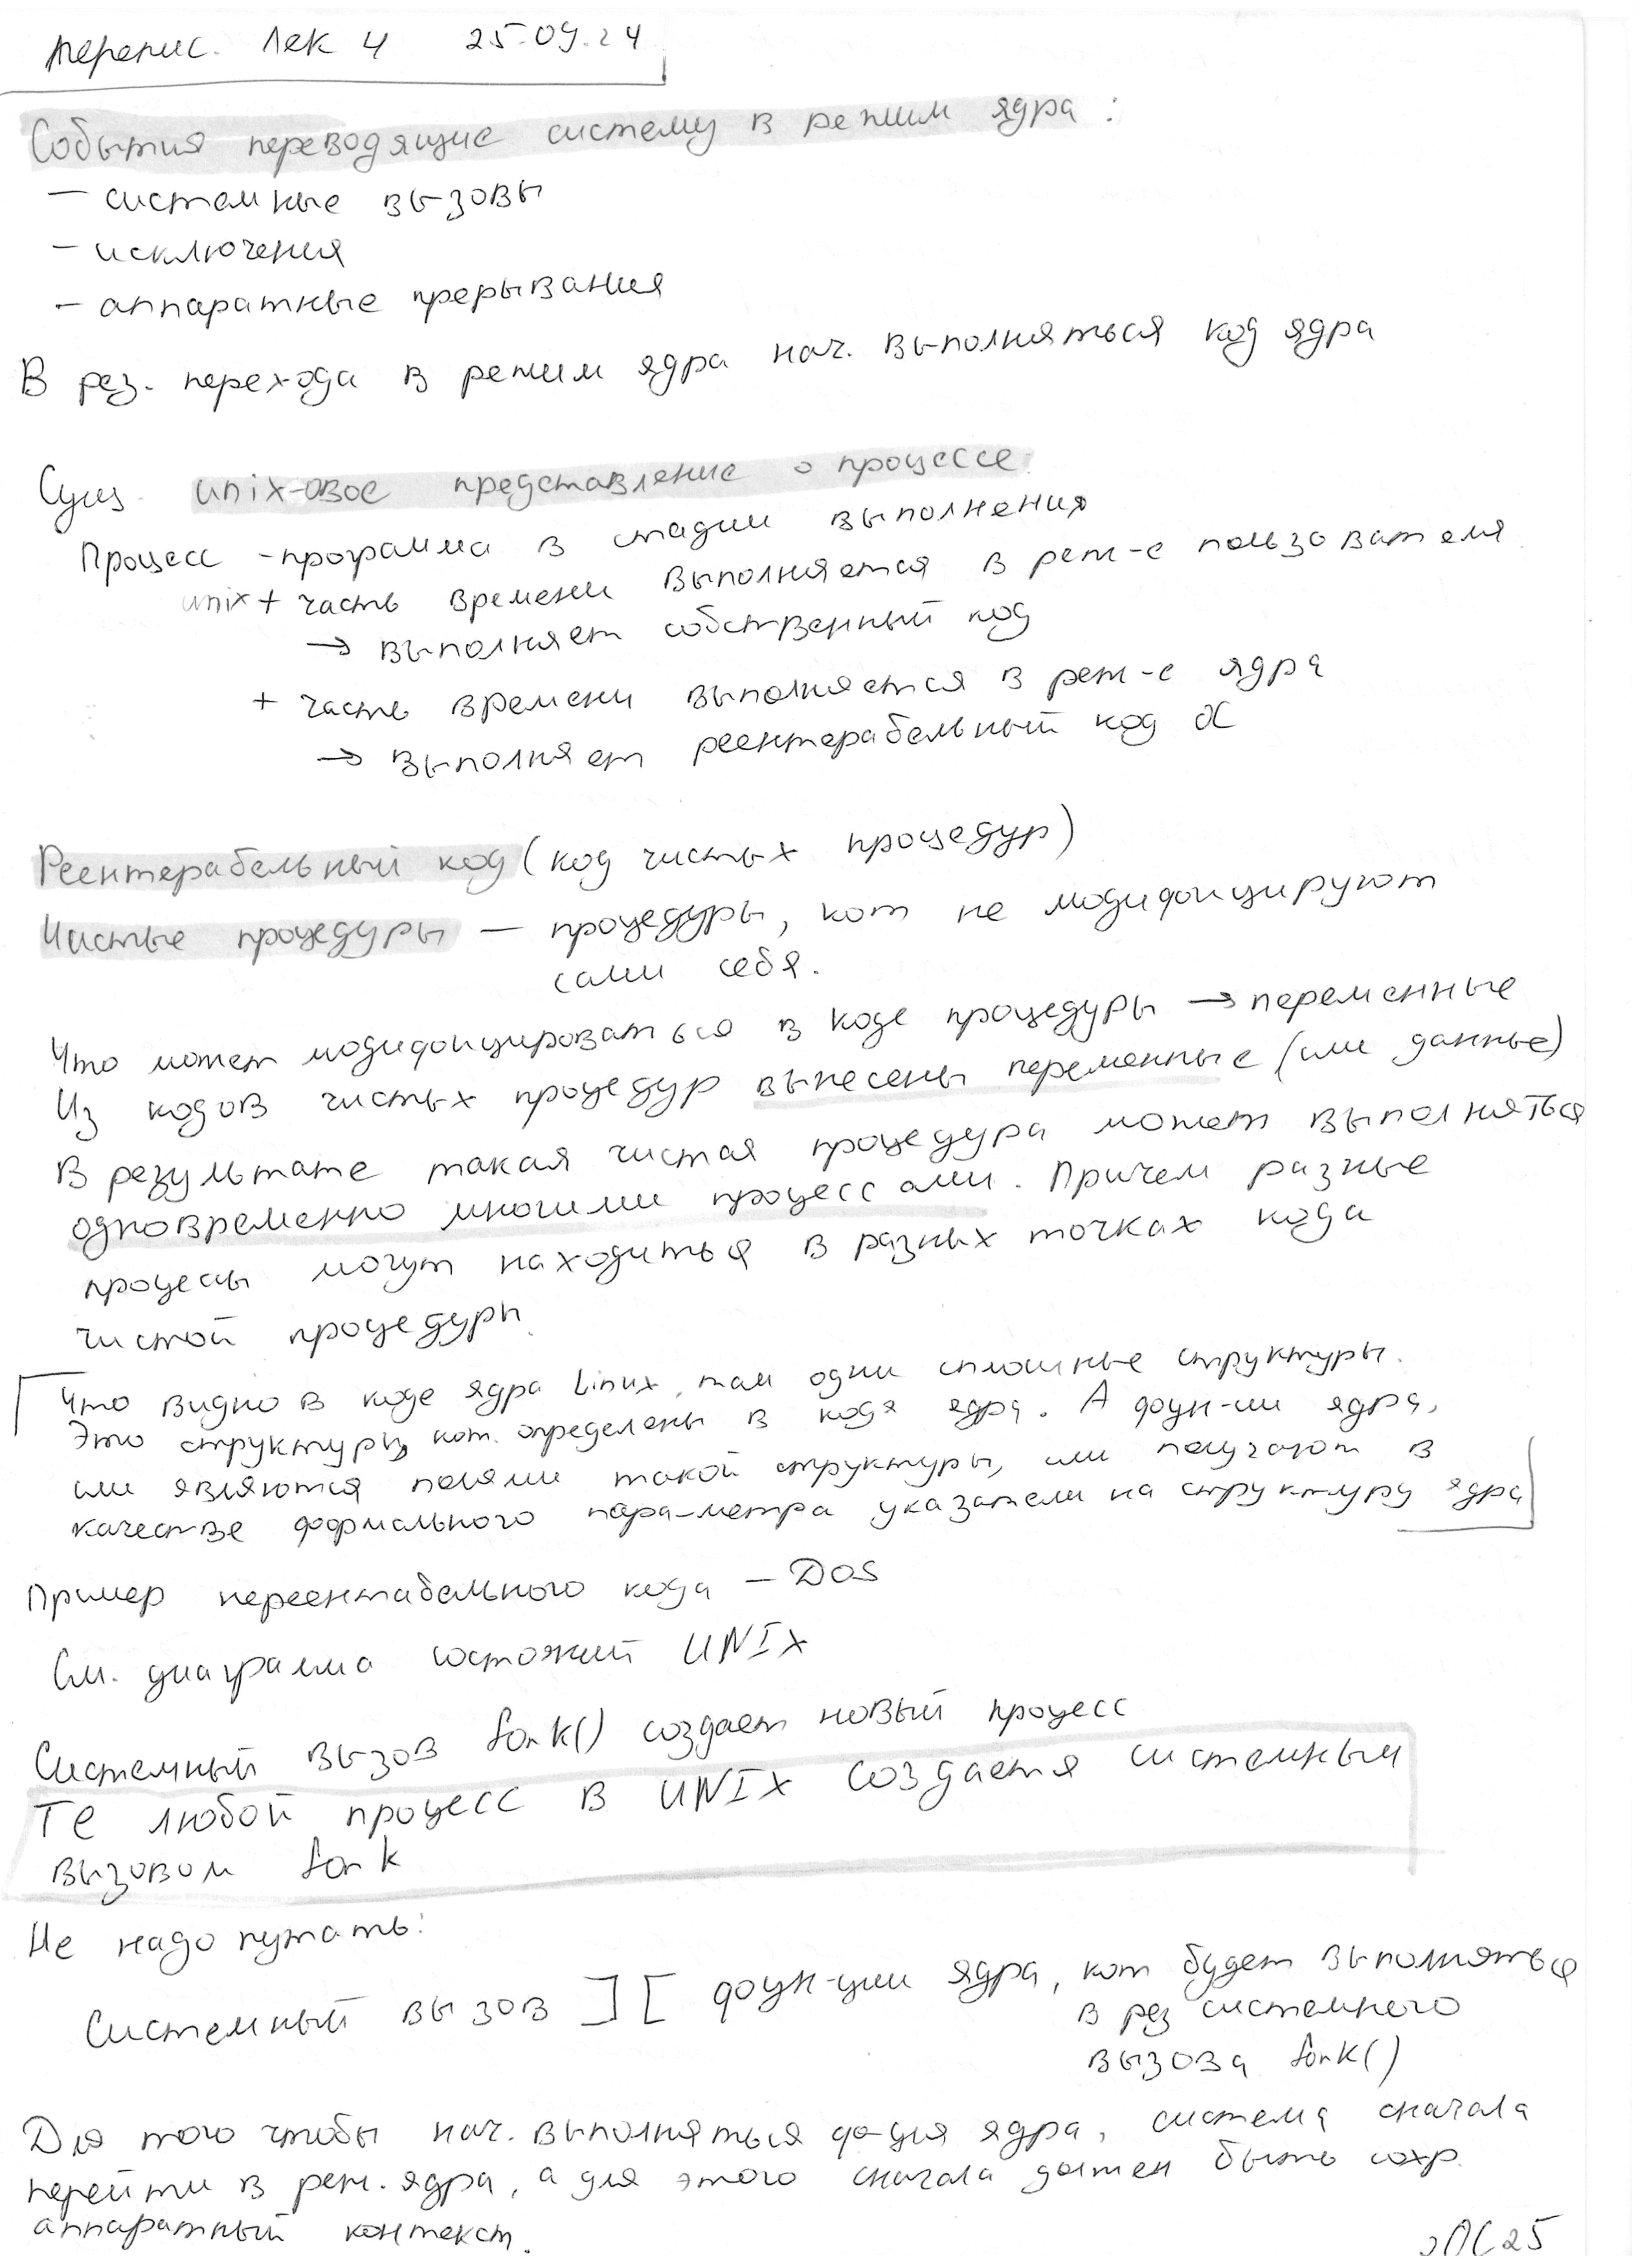 перепис. Лек 4 25.09.24
События переводящие систему в режим ядра:
— системные вызовы
— исключения
— аппаратные прерывания
В рез. перехода в режим ядра нач. выполняться код ядра
Сущ. unix-овое представление о процессе.
Процесс - программа в стадии выполнения
unix + часть времени выполняется в реж-е пользователя
→ выполняет собственный код
+ часть времени выполняется в реж-е ядра
→ выполняет реентерабельный код
Реентерабельный код (код чистых процедур)
Чистые процедуры — процедуры, кот не модифицируют
сами себя.
Что может модифицироваться в коде процедуры → переменные
Из кодов чистых процедур вынесены переменные (или данные)
В результате такая чистая процедура может выполняться
одновременно многими процессами. Причем разные
процессы могут находиться в разных точках кода
чистой процедуры.
Что видно в коде ядра Linux, там одни сплошные структуры.
Это структуры, кот. определены в кодя ядра. А функ-ии ядра,
или являются полями такой структуры, или получают в
качестве формального пара-метра указатели на структуру ядра
Пример нереентабельного кода — DOS
См. диаграмма состояний UNIX
Системный вызов fork() создает новый процесс
Те любой процесс в UNIX создается системным
вызовом fork
Не надо путать:
Системный вызов ][ функ-ции ядра, кот будет выполняться
в рез системного
вызова fork()
Для того чтобы нач. выполняться ф-ция ядра, система сначала
перейти в реж. ядра, а для этого сначала должен быть сохр.
аппаратный контекст.